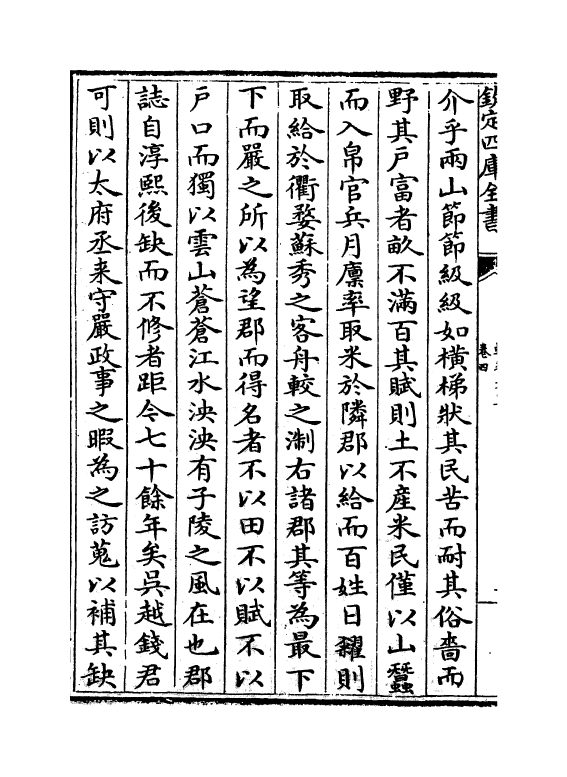 欽定四庫全書
卷四
介乎兩山節節級級如橫梯狀其民苦而耐其俗嗇而
野其戶富者畝不滿百其賦則土不產米民僅以山蠶
而入帛官兵月廪率取米於隣郡以給而百姓日糴則
取給於衢婺蘇秀之客舟較之淛右諸郡其等為最下
下而嚴之所以為望郡而得名者不以田不以賦不以
戶口而獨以雲山蒼蒼江水泱泱有子陵之風在也郡
誌自淳熙後缺而不修者距今七十餘年矣吳越錢君
可則以太府丞来守嚴政事之暇為之訪蒐以補其缺